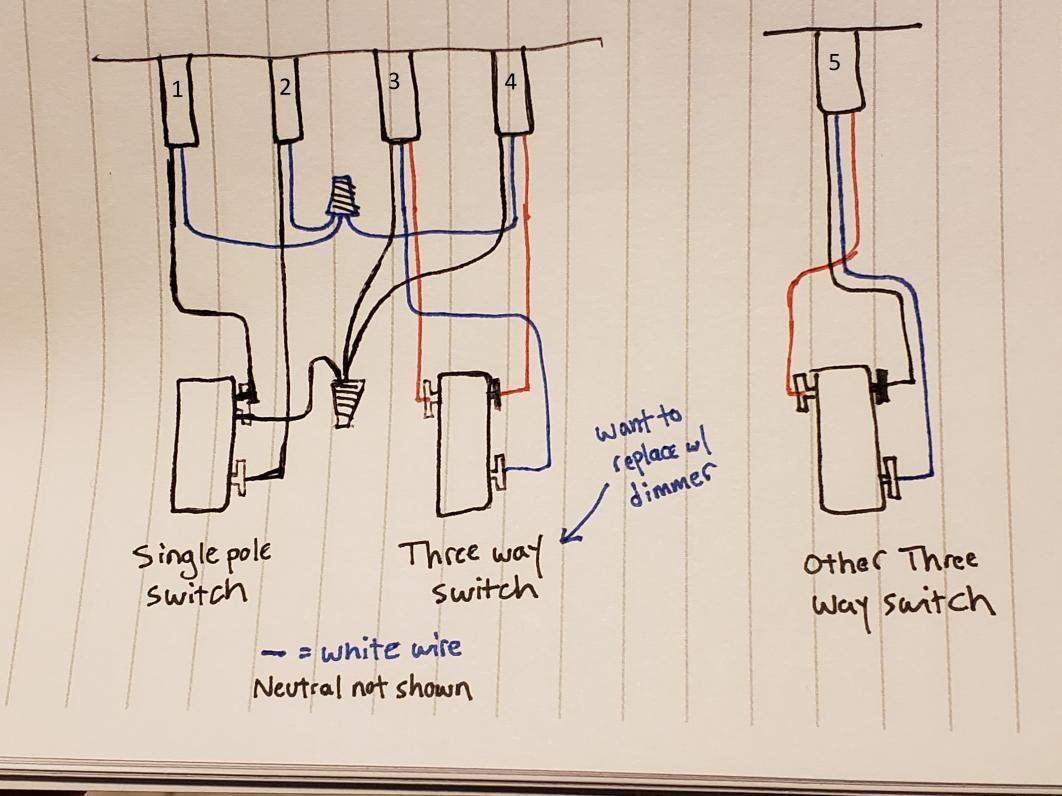 1
2
3
4
5
want to
replace w/
dimmer
Single pole
switch
Three way
switch
Other Three
Way switch
— = white wire
Neutral not shown